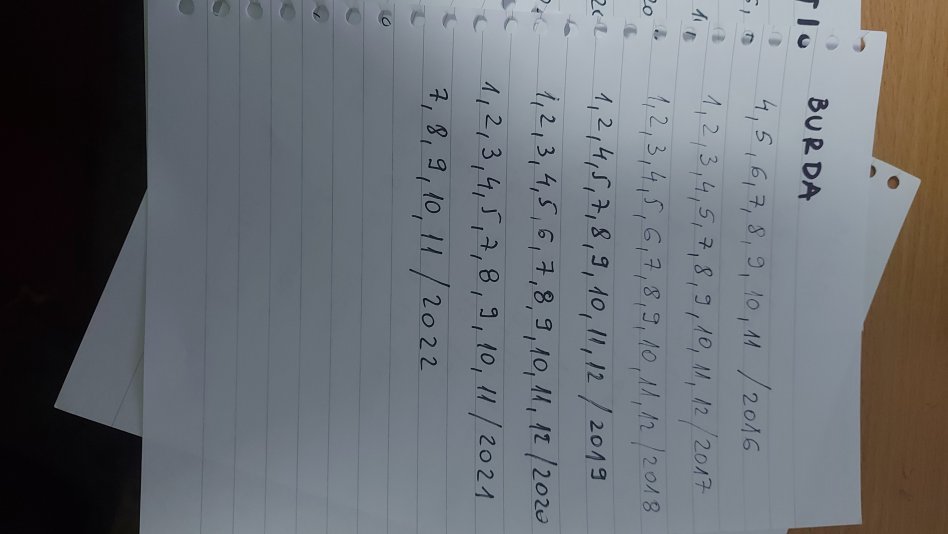 BURDA
4, 5, 6, 7, 8, 9, 10, 11 / 2016
1, 2, 3, 4, 5, 7, 8, 9, 10, 11, 12 / 2017
1, 2, 3, 4, 5, 6, 7, 8, 9, 10, 11, 12 / 2018
1, 2, 4, 5, 7, 8, 9, 10, 11, 12 / 2019
1, 2, 3, 4, 5, 6, 7, 8, 9, 10, 11, 12 / 2020
1, 2, 3, 4, 5, 7, 8, 9, 10, 11 / 2021
7, 8, 9, 10, 11 / 2022